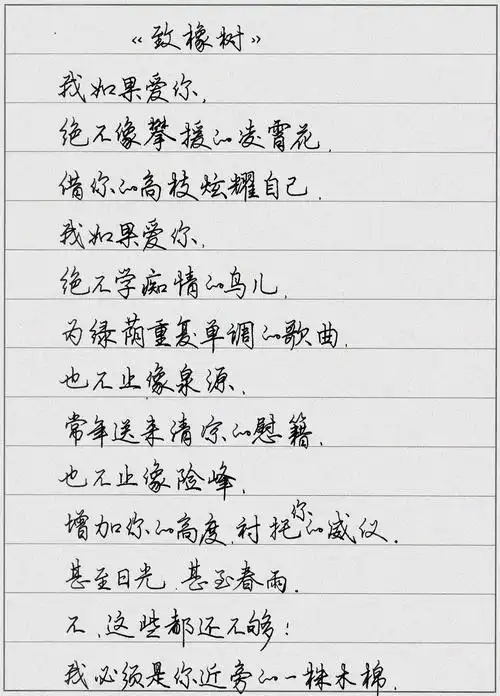 《致橡树》
我如果爱你，
绝不像攀援的凌霄花，
借你的高枝炫耀自己．
我如果爱你，
绝不学痴情的鸟儿，
为绿荫重复单调的歌曲．
也不止像泉源，
常年送来清凉的慰籍．
也不止像险峰，
增加你的高度，衬托你的威仪．
甚至日光，甚至春雨．
不，这些都还不够！
我必须是你近旁的一株木棉，